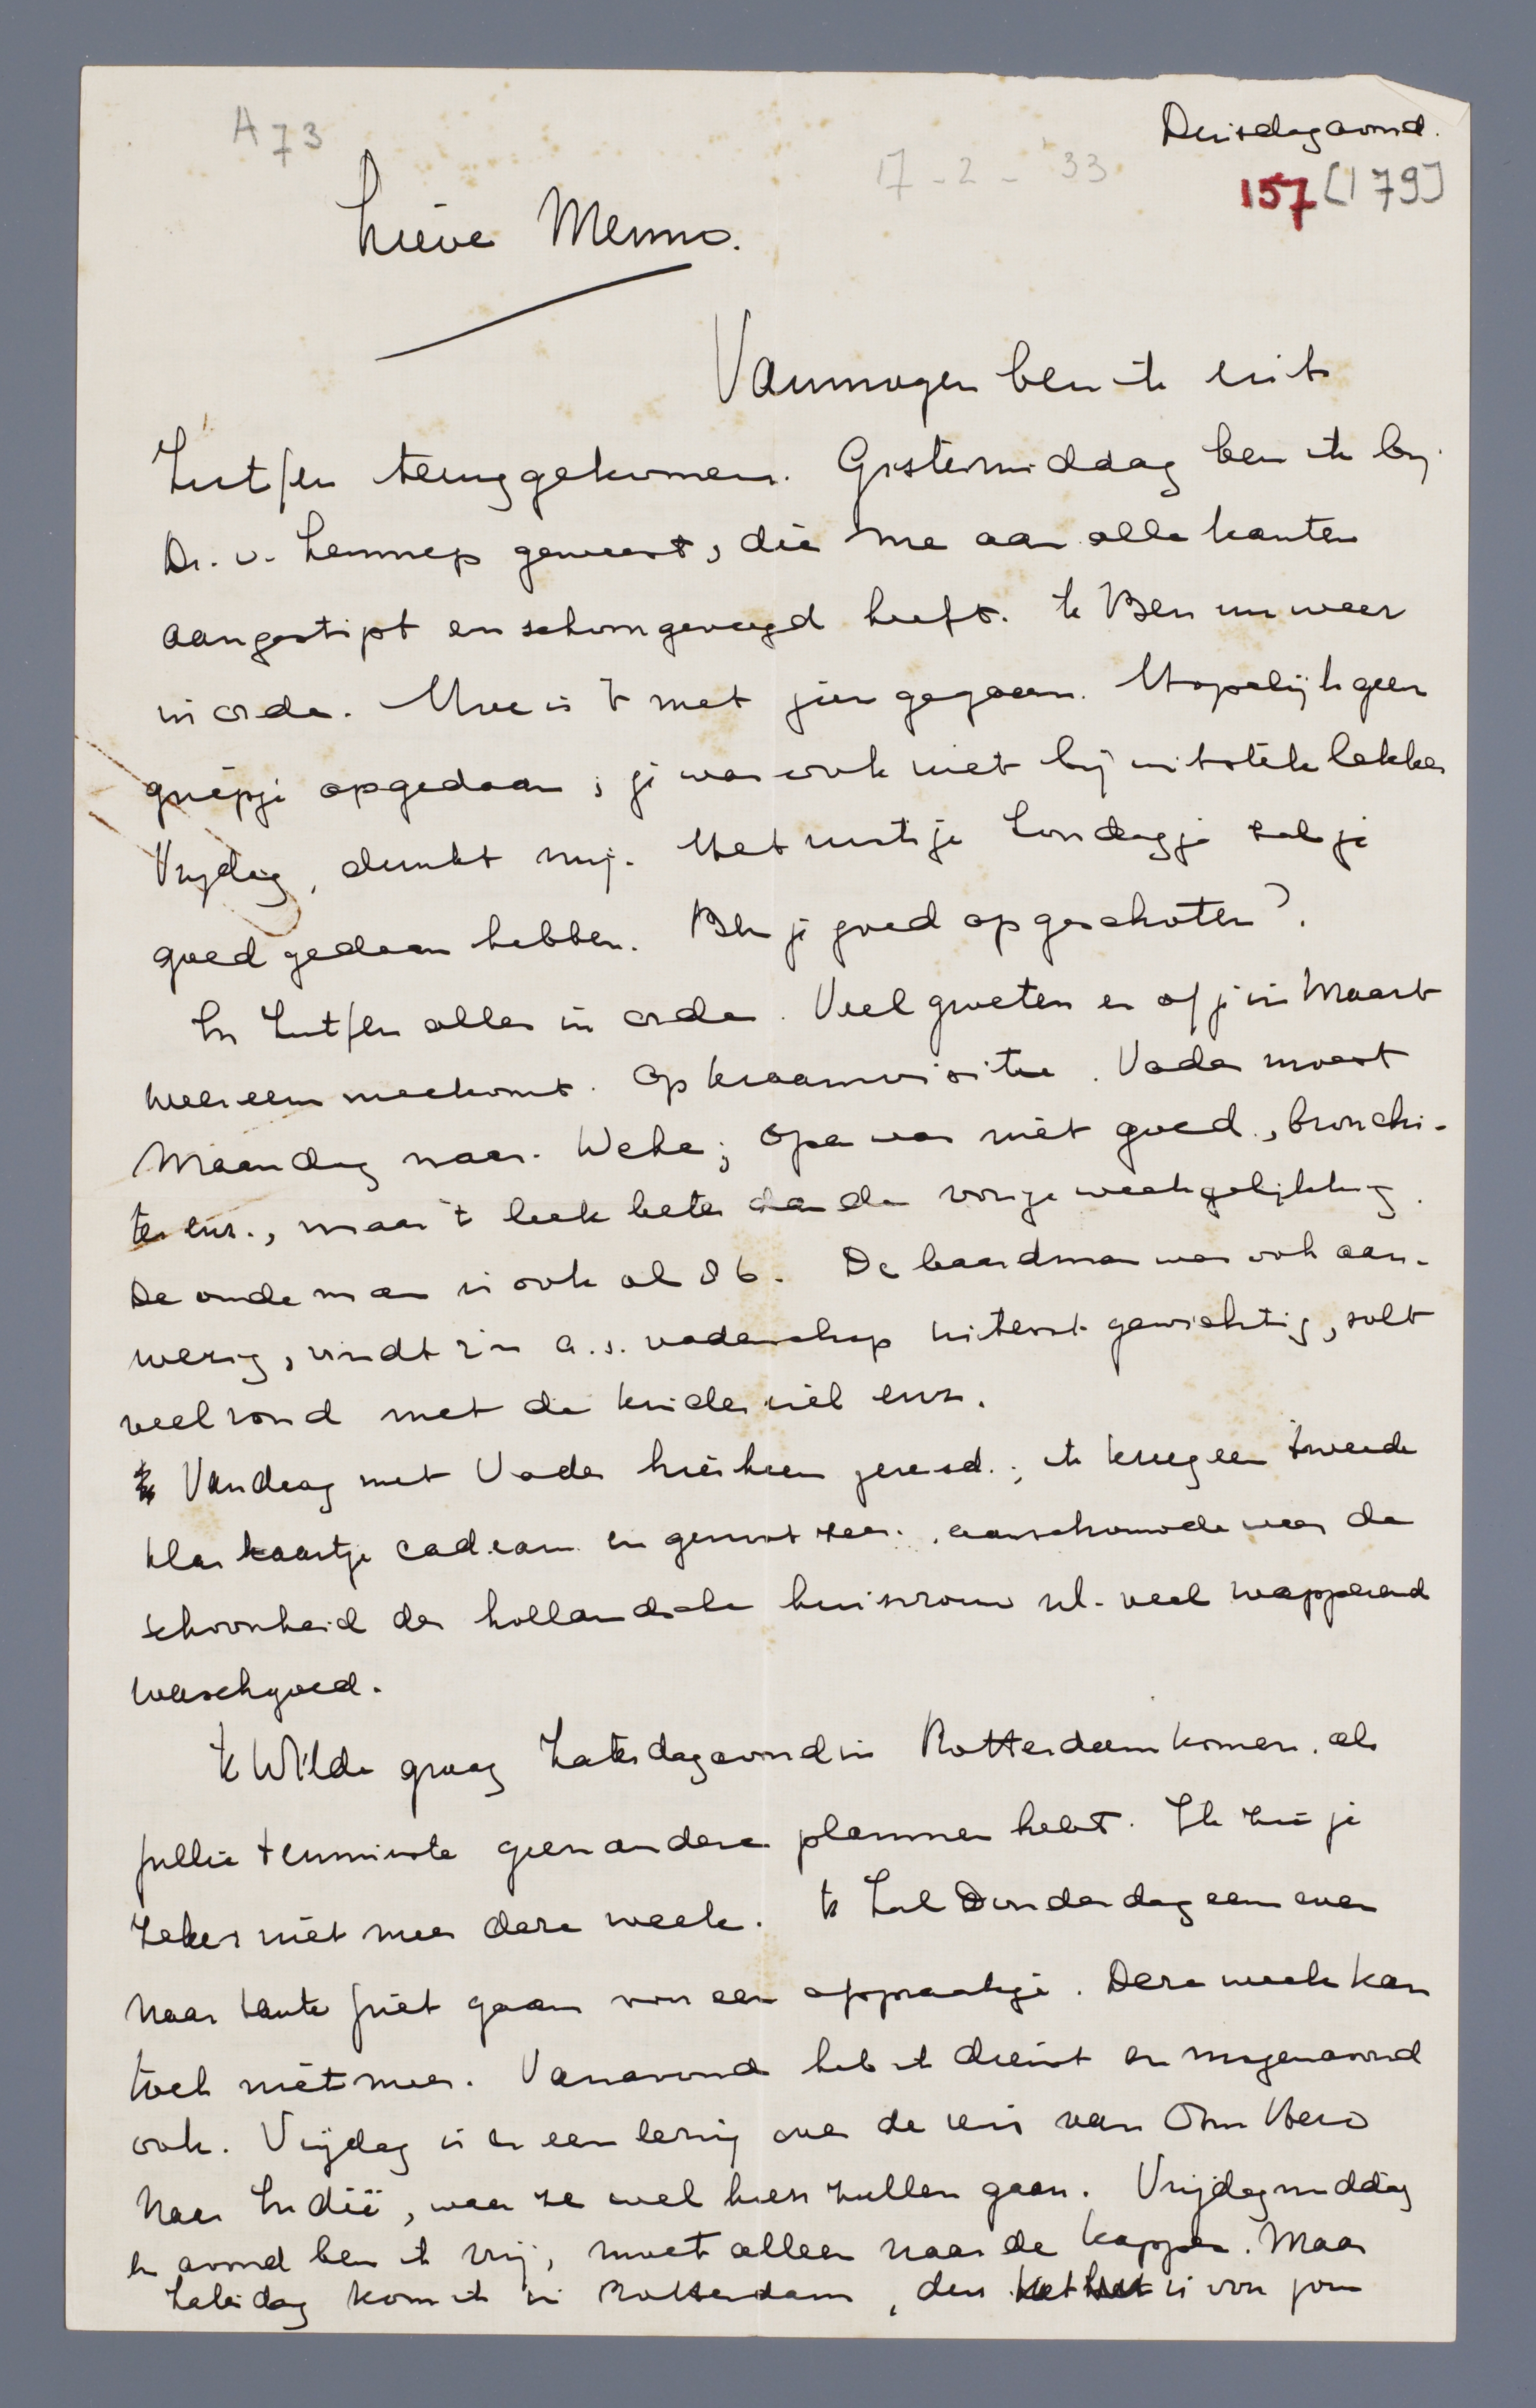 A73
Dinsdagavond.
17-2-33
157 [179]
Lieve Menno.
Vanmorgen ben ik uit
Zutfen teruggekomen. Gistermiddag ben ik bij
Dr. v. Lennep geweest, die me aan alle kanten
aangestipt en schoongeveegd heeft. Ik Ben nu weer
in orde. Hoe is 't met jou gegaan. Hopelijk geen
griepje opgedaan; je was ook niet bij uitstek lekker
Vrijdag, dunkt mij. Het rustige Zondagje zal je
goed gedaan hebben. Ben je goed opgeschoten?
In Zutfen alles in orde. Veel groeten en of je in Maart
weer eens meekomt. Op kraamvisite. Vader moest
Maandag naar Wehe; Opa was niet goed, bronchi-
tes enz., maar 't leek beter dan de vorige week gelukkig.
De oude man is ook al 86. De baardman was ook aan-
wezig, vindt z'n a.s. vaderschap uiterst gewichtig, solt
veel rond met de kinder enz.
Vandaag met Vader hierheen gereisd; ik kreeg een tweede
klas kaartje cadeau en genoot zeer, aanschouwde weer de
schoonheid der hollandsche huisvrouw nl. veel wapperend
waschgoed.
Ik Wilde graag Zaterdagavond in Rotterdam komen, als
jullie tenminste geen andere plannen hebt. Ik zie je
zeker niet meer deze week. Ik Zal Donderdag eens even
naar tante Juet gaan voor een afspraakje. Deze week kan
toch niet meer. Vanavond heb ik dienst en morgenavond
ook. Vrijdag is er een lezing over de reis van Oom Hero
naar Indië, waar ze wel heen zullen gaan. Vrijdagmiddag
en avond ben ik vrij, moet alleen naar de kapper. Maar
Zaterdag kom ik in Rotterdam, dus het is voor jou